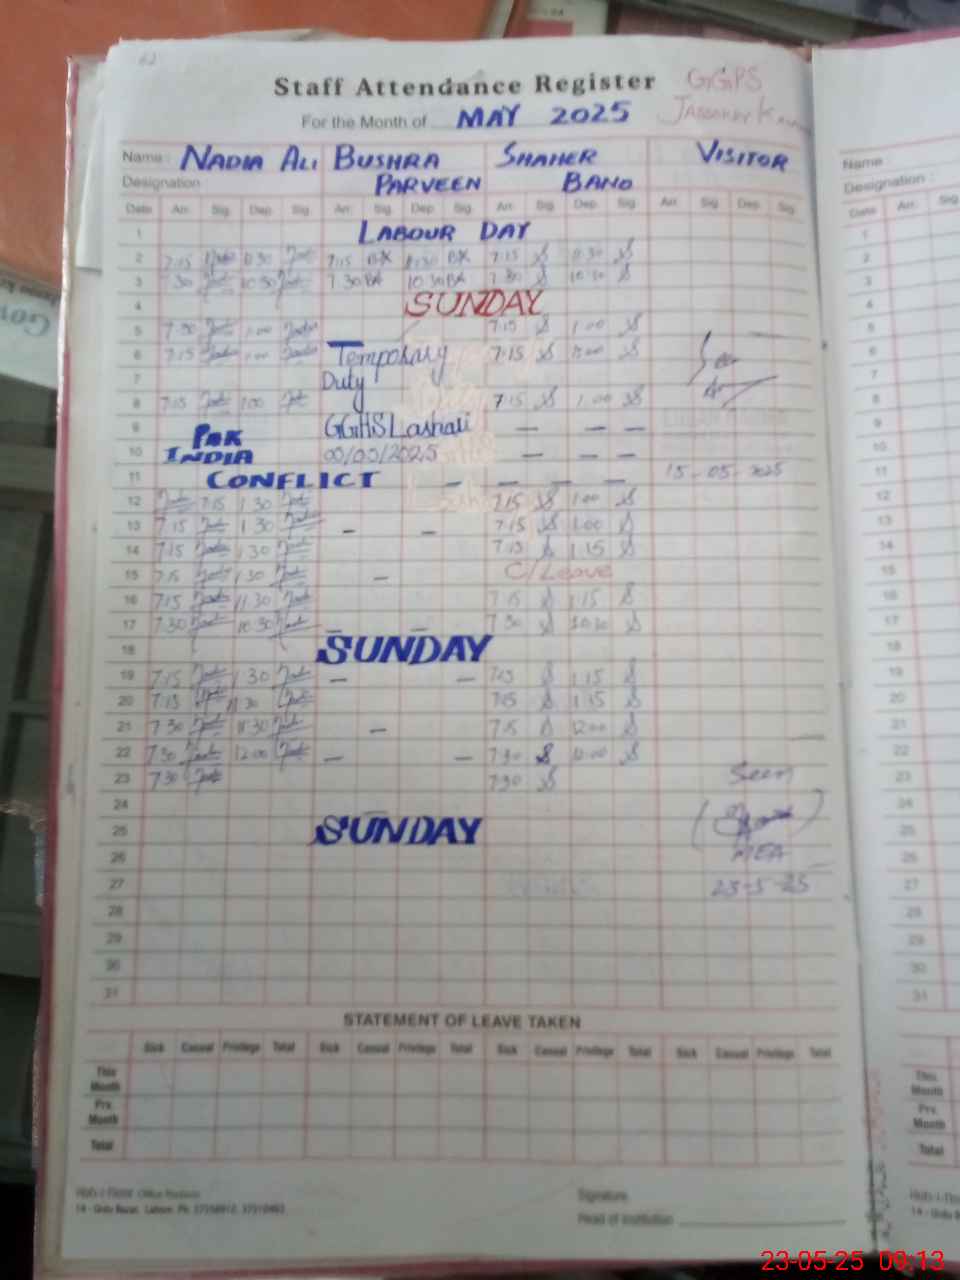 62
Staff Attendance Register GGPS
For the Month of MAY 2025
Name : NADIA ALI BUSHRA SHAHER VISITOR
Designation PARVEEN BANO
Date Arr. Sig. Dep. Sig. Arr. Sig. Dep. Sig. Arr. Sig. Dep. Sig. Arr. Sig. Dep. Sig.
1 LABOUR DAY
2 7:15 11:30 7:15 11:30 7:15 11:30
3 7:30 10:30 7:30 10:30 7:30 10:30
4 SUNDAY
5 7:30 1:00 7:15 1:00
6 7:15 1:00 Temporary 7:15 1:00
7 Duty
8 7:15 1:00 7:15 1:00
9 GGHS Lashari — — —
10 PAK INDIA — — —
11 CONFLICT — — — — 15-05-2025
12 7:15 1:30 7:15 1:00
13 7:15 1:30 — — 7:15 1:00
14 7:15 1:30 7:15 1:15
15 7:15 1:30 — C/Leave
16 7:15 11:30 7:15 1:15
17 7:30 10:30 — — 7:30 10:30
18 SUNDAY
19 7:15 1:30 — — 7:15 1:15
20 7:15 11:30 7:15 1:15
21 7:30 11:30 — 7:15 12:00
22 7:30 12:00 — — 7:30 12:00
23 7:30 7:30 Seen
24
25 SUNDAY
26 MEA
27 23-5-25
28
29
30
31
STATEMENT OF LEAVE TAKEN
Sick Casual Privilege Total Sick Casual Privilege Total Sick Casual Privilege Total Sick Casual Privilege Total
This Month
Prv. Month
Total
Signature
Head of Institution
Name
Designation :
Date Arr. Sig.
1
2
3
4
5
6
7
8
9
10
11
12
13
14
15
16
17
18
19
20
21
22
23
24
25
26
27
28
29
30
31
This Month
Prv. Month
Total
23-05-25 09:13